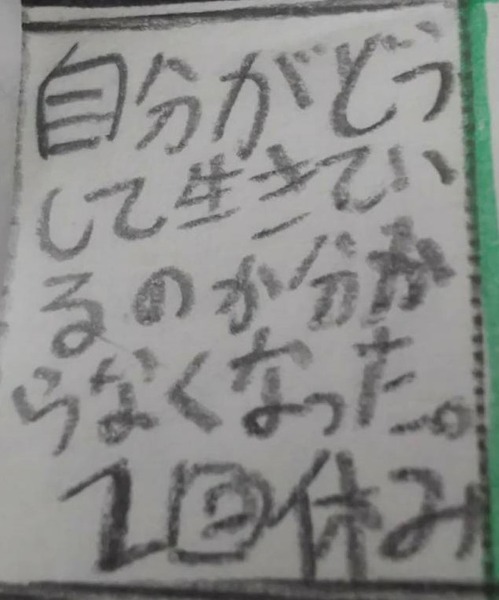 自分がどう
して生きてい
るのか分か
らなくなった。
1回休み